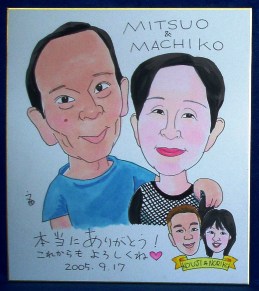 MITSUO
&
MACHIKO
本当にありがとう！
これからも よろしくね♥
2005.9.17
KOUJI & NORIKO